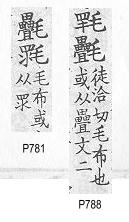 氎
毛布或
从眔
P781
氎
徒洽切毛布也
或从疊文二
P788